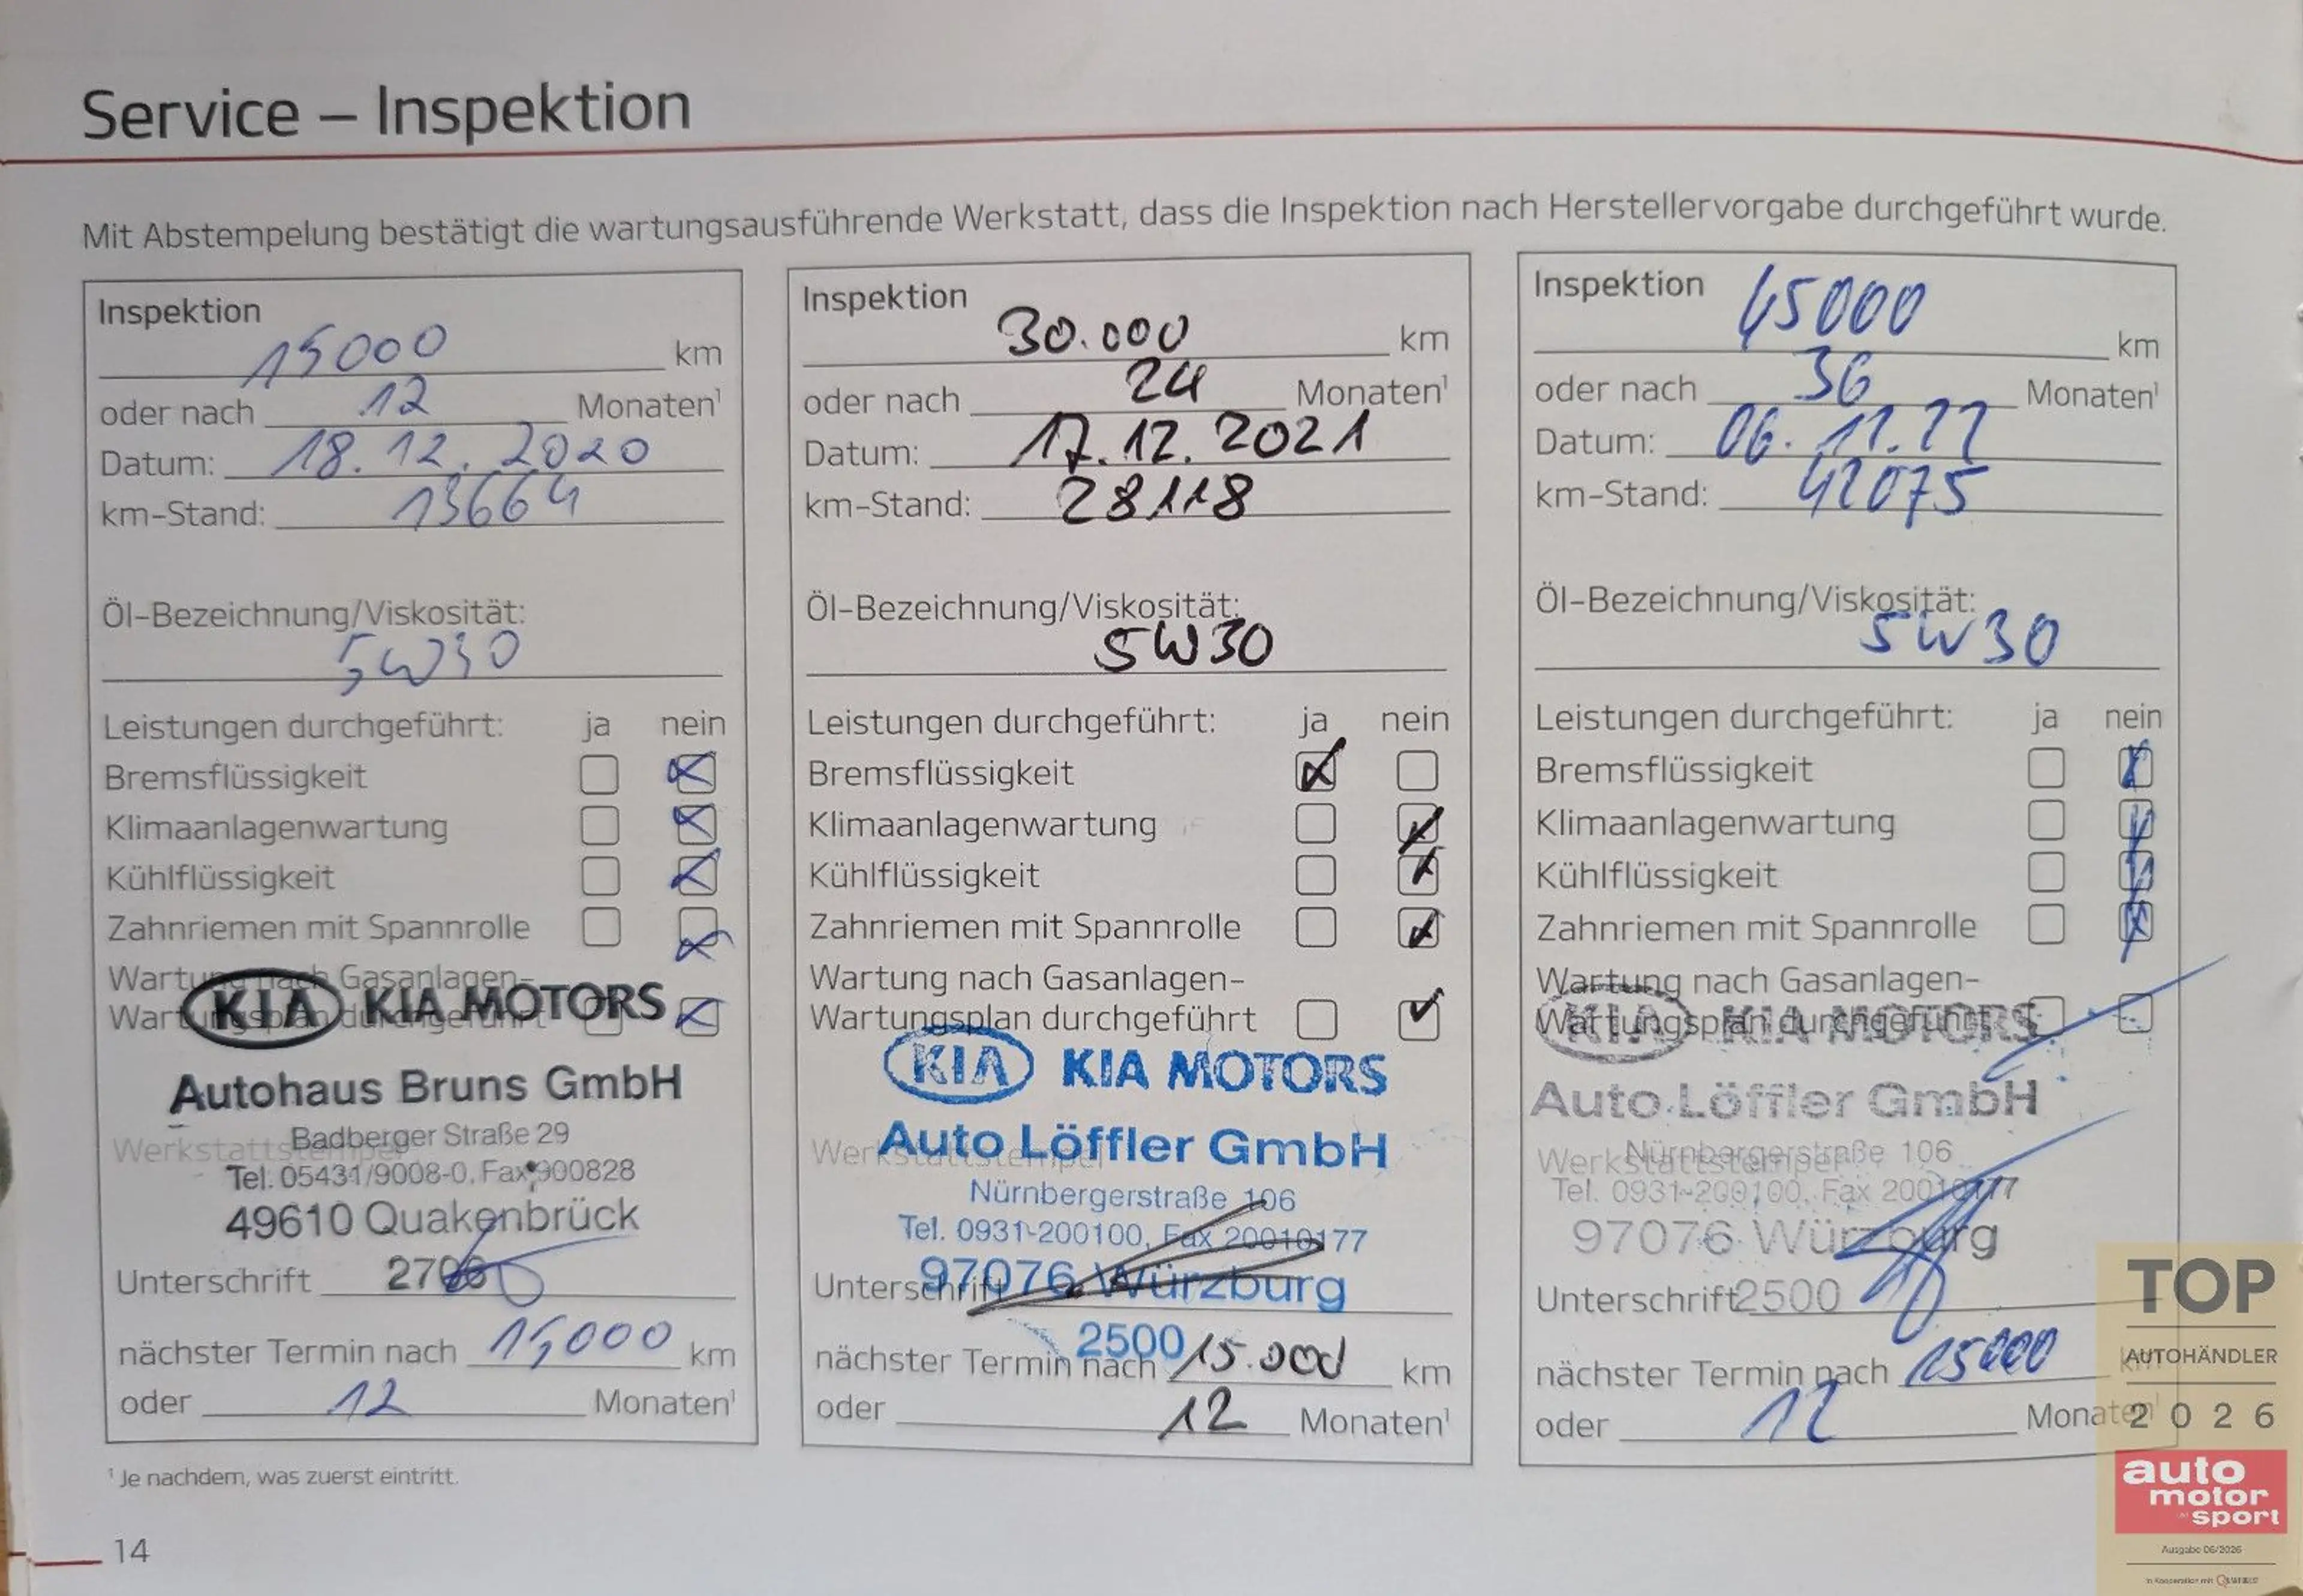 Service – Inspektion
Mit Abstempelung bestätigt die wartungsausführende Werkstatt, dass die Inspektion nach Herstellervorgabe durchgeführt wurde.
Inspektion
15000 km
oder nach 12 Monaten¹
Datum: 18.12.2020
km-Stand: 13664
Öl-Bezeichnung/Viskosität:
5W30
Leistungen durchgeführt: ja nein
Bremsflüssigkeit
Klimaanlagenwartung
Kühlflüssigkeit
Zahnriemen mit Spannrolle
Wartung nach Gasanlagen-
Wartungsplan durchgeführt
KIA KIA MOTORS
Autohaus Bruns GmbH
Badberger Straße 29
Werkstattstempel
Tel. 05431/9008-0, Fax 900828
49610 Quakenbrück
Unterschrift 2706
nächster Termin nach 15,000 km
oder 12 Monaten¹
Inspektion
30.000 km
oder nach 24 Monaten¹
Datum: 17.12.2021
km-Stand: 28118
Öl-Bezeichnung/Viskosität:
5W30
Leistungen durchgeführt: ja nein
Bremsflüssigkeit
Klimaanlagenwartung
Kühlflüssigkeit
Zahnriemen mit Spannrolle
Wartung nach Gasanlagen-
Wartungsplan durchgeführt
KIA KIA MOTORS
Auto Löffler GmbH
Werkstattstempel
Nürnbergerstraße 106
Tel. 0931-200100, Fax 20010177
97076 Würzburg
Unterschrift
2500
nächster Termin nach 15.000 km
oder 12 Monaten¹
Inspektion
45000 km
oder nach 36 Monaten¹
Datum: 06.11.22
km-Stand: 42075
Öl-Bezeichnung/Viskosität:
5W30
Leistungen durchgeführt: ja nein
Bremsflüssigkeit
Klimaanlagenwartung
Kühlflüssigkeit
Zahnriemen mit Spannrolle
Wartung nach Gasanlagen-
Wartungsplan durchgeführt
KIA KIA MOTORS
Auto Löffler GmbH
Nürnbergerstraße 106
Werkstattstempel
Tel. 0931-200100, Fax 20010177
97076 Würzburg
Unterschrift 2500
nächster Termin nach 15000 km
oder 12 Monaten¹
¹ Je nachdem, was zuerst eintritt.
14
TOP
AUTOHÄNDLER
2026
auto
motor
sport
Ausgabe 06/2026
In Kooperation mit